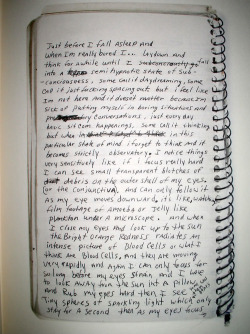 Just before I fall asleep and
when I'm really bored I... laydown and
think for awhile until I fall
into a semi hypnotic state of sub-
consciousness, some call it daydreaming, some
call it just fucking spacing out but i feel like
Im not here and it doesnt matter because Im
sick of putting myself in boring situations and
conversations, just every day
basic sitcom happenings, some call it thinking
but when in this
particular state of mind i forget to think and it
becomes strictly observatory. I notice things
very sensitively like if i focus really hard
I can see small transparent blotches of
debris on the outer shell of my eyes.
(or the conjunctiva). and can only follow it
as My eye moves downward, its like, watching
film footage of Amoeba or jelly like
plankton under A microscope. and when
I close my eyes And look up to the sun
the Bright Orange Redness radiates an
intense picture of Blood cells or what I
think are Blood cells, and they are moving
very rapidly and again I can only focus for
so long before my eyes strain and I have
to look away from the sun into A pillow and
and Rub my eyes hard then i see
Tiny spheres of sparkling light which only
stay for A second then as My eyes focus